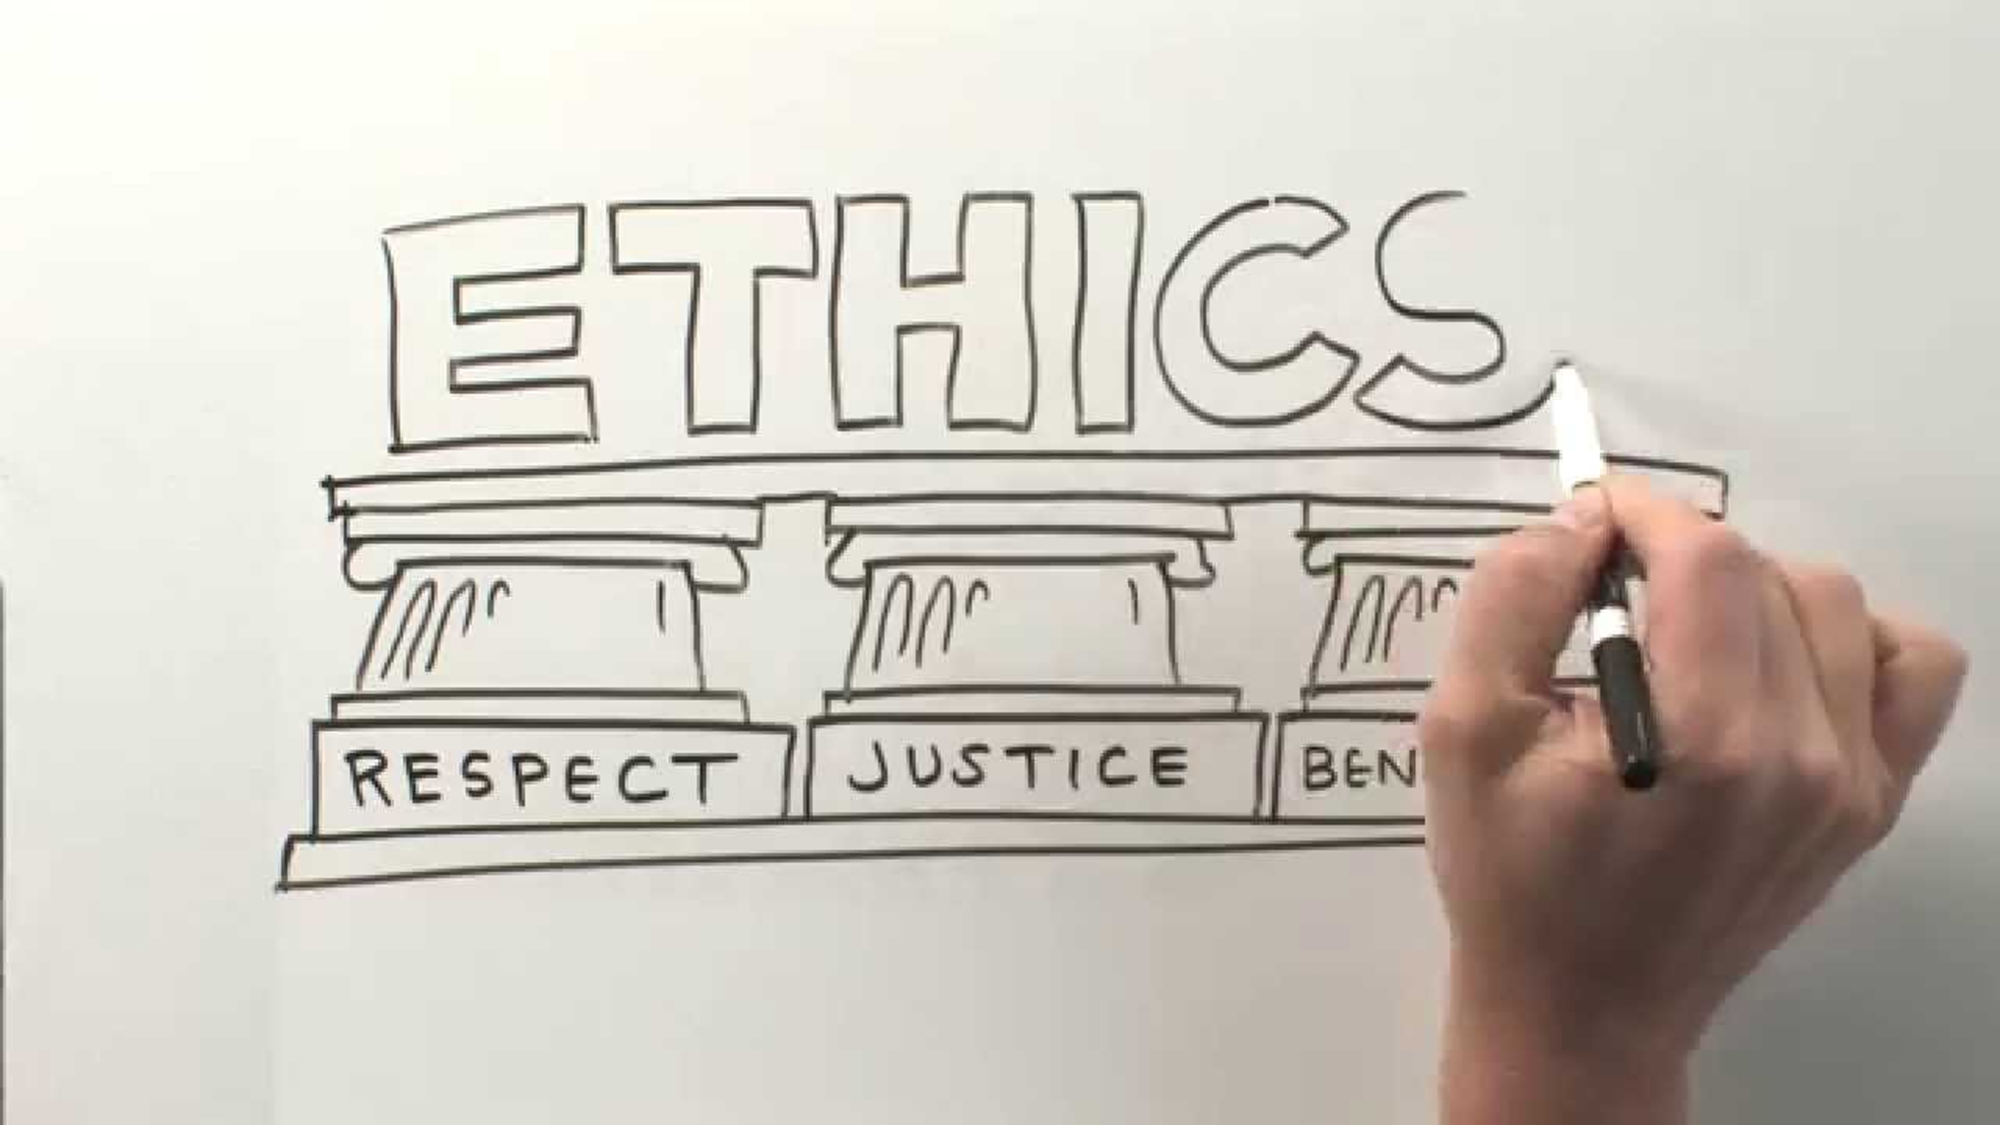 ETHICS
RESPECT JUSTICE BEN